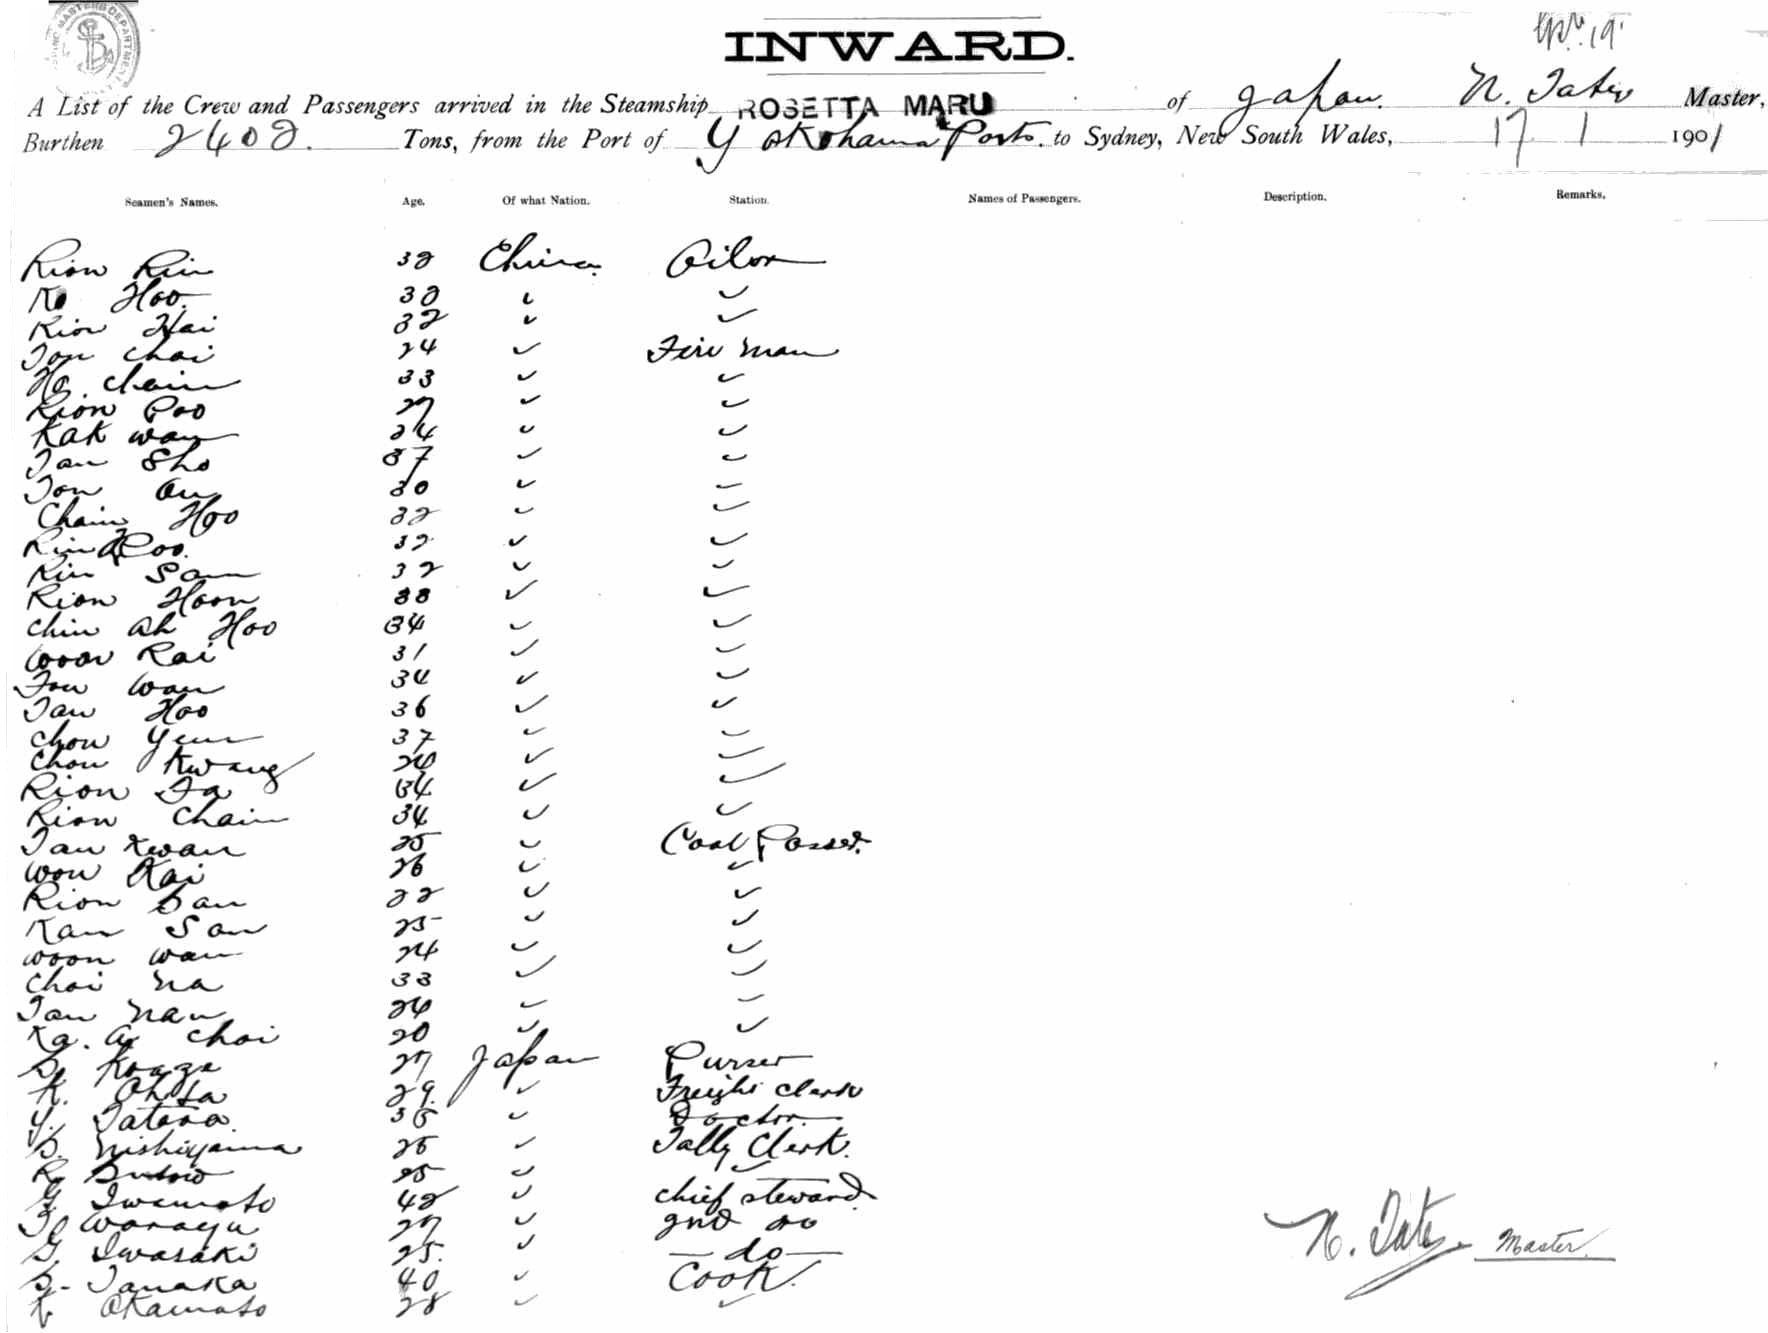 INWARD.
A List of the Crew and Passengers arrived in the Steamship ROSETTA MARU of Japan. N. Tate Master,
Burthen 2402. Tons, from the Port of Yokohama Ports. to Sydney, New South Wales, 17 1 1901
Seamen's Names. Age. Of what Nation. Station. Names of Passengers. Description. Remarks.
Rion Rin 32 China Oilor
Ko Hoo. 32 " "
Rion Hai 32 " "
Ton Chai 24 " Fire man
Ho Chain 33 " "
Rion Poo 27 " "
Kak wan 24 " "
Tan Sho 37 " "
Ton On 30 " "
Chain Hoo 32 " "
Rin Poo. 32 " "
Rin Sam 32 " "
Rion Hoon 33 " "
Chin Ah Hoo 34 " "
Woon Rai 31 " "
Fou Wan 34 " "
Tan Hoo 36 " "
Chou Yeun 37 " "
Chou Kwang 24 " "
Rion Fa 34 " "
Rion Chain 34 " "
Tan Kwan 25 " Coal Passer.
Won Kai 26 " "
Rion San 22 " "
Kan San 25 " "
Woon Wan 24 " "
Choi Na 33 " "
Tan Nan 24 " "
Ka. A Choi 20 " "
S. Koaze 27 Japan Purser
K. Ohta 29. " Freight Clerk
Y. Tatara 35 " Doctor.
S. Nishiyama 25 " Tally Clerk.
R. 25 " "
G. Iwamoto 42 " Chief steward
27 " 2nd do
G. Iwasaki 25. " do
S. Tanaka 40 " Cook.
K. Okamoto 28 " "
N. Tate. Master